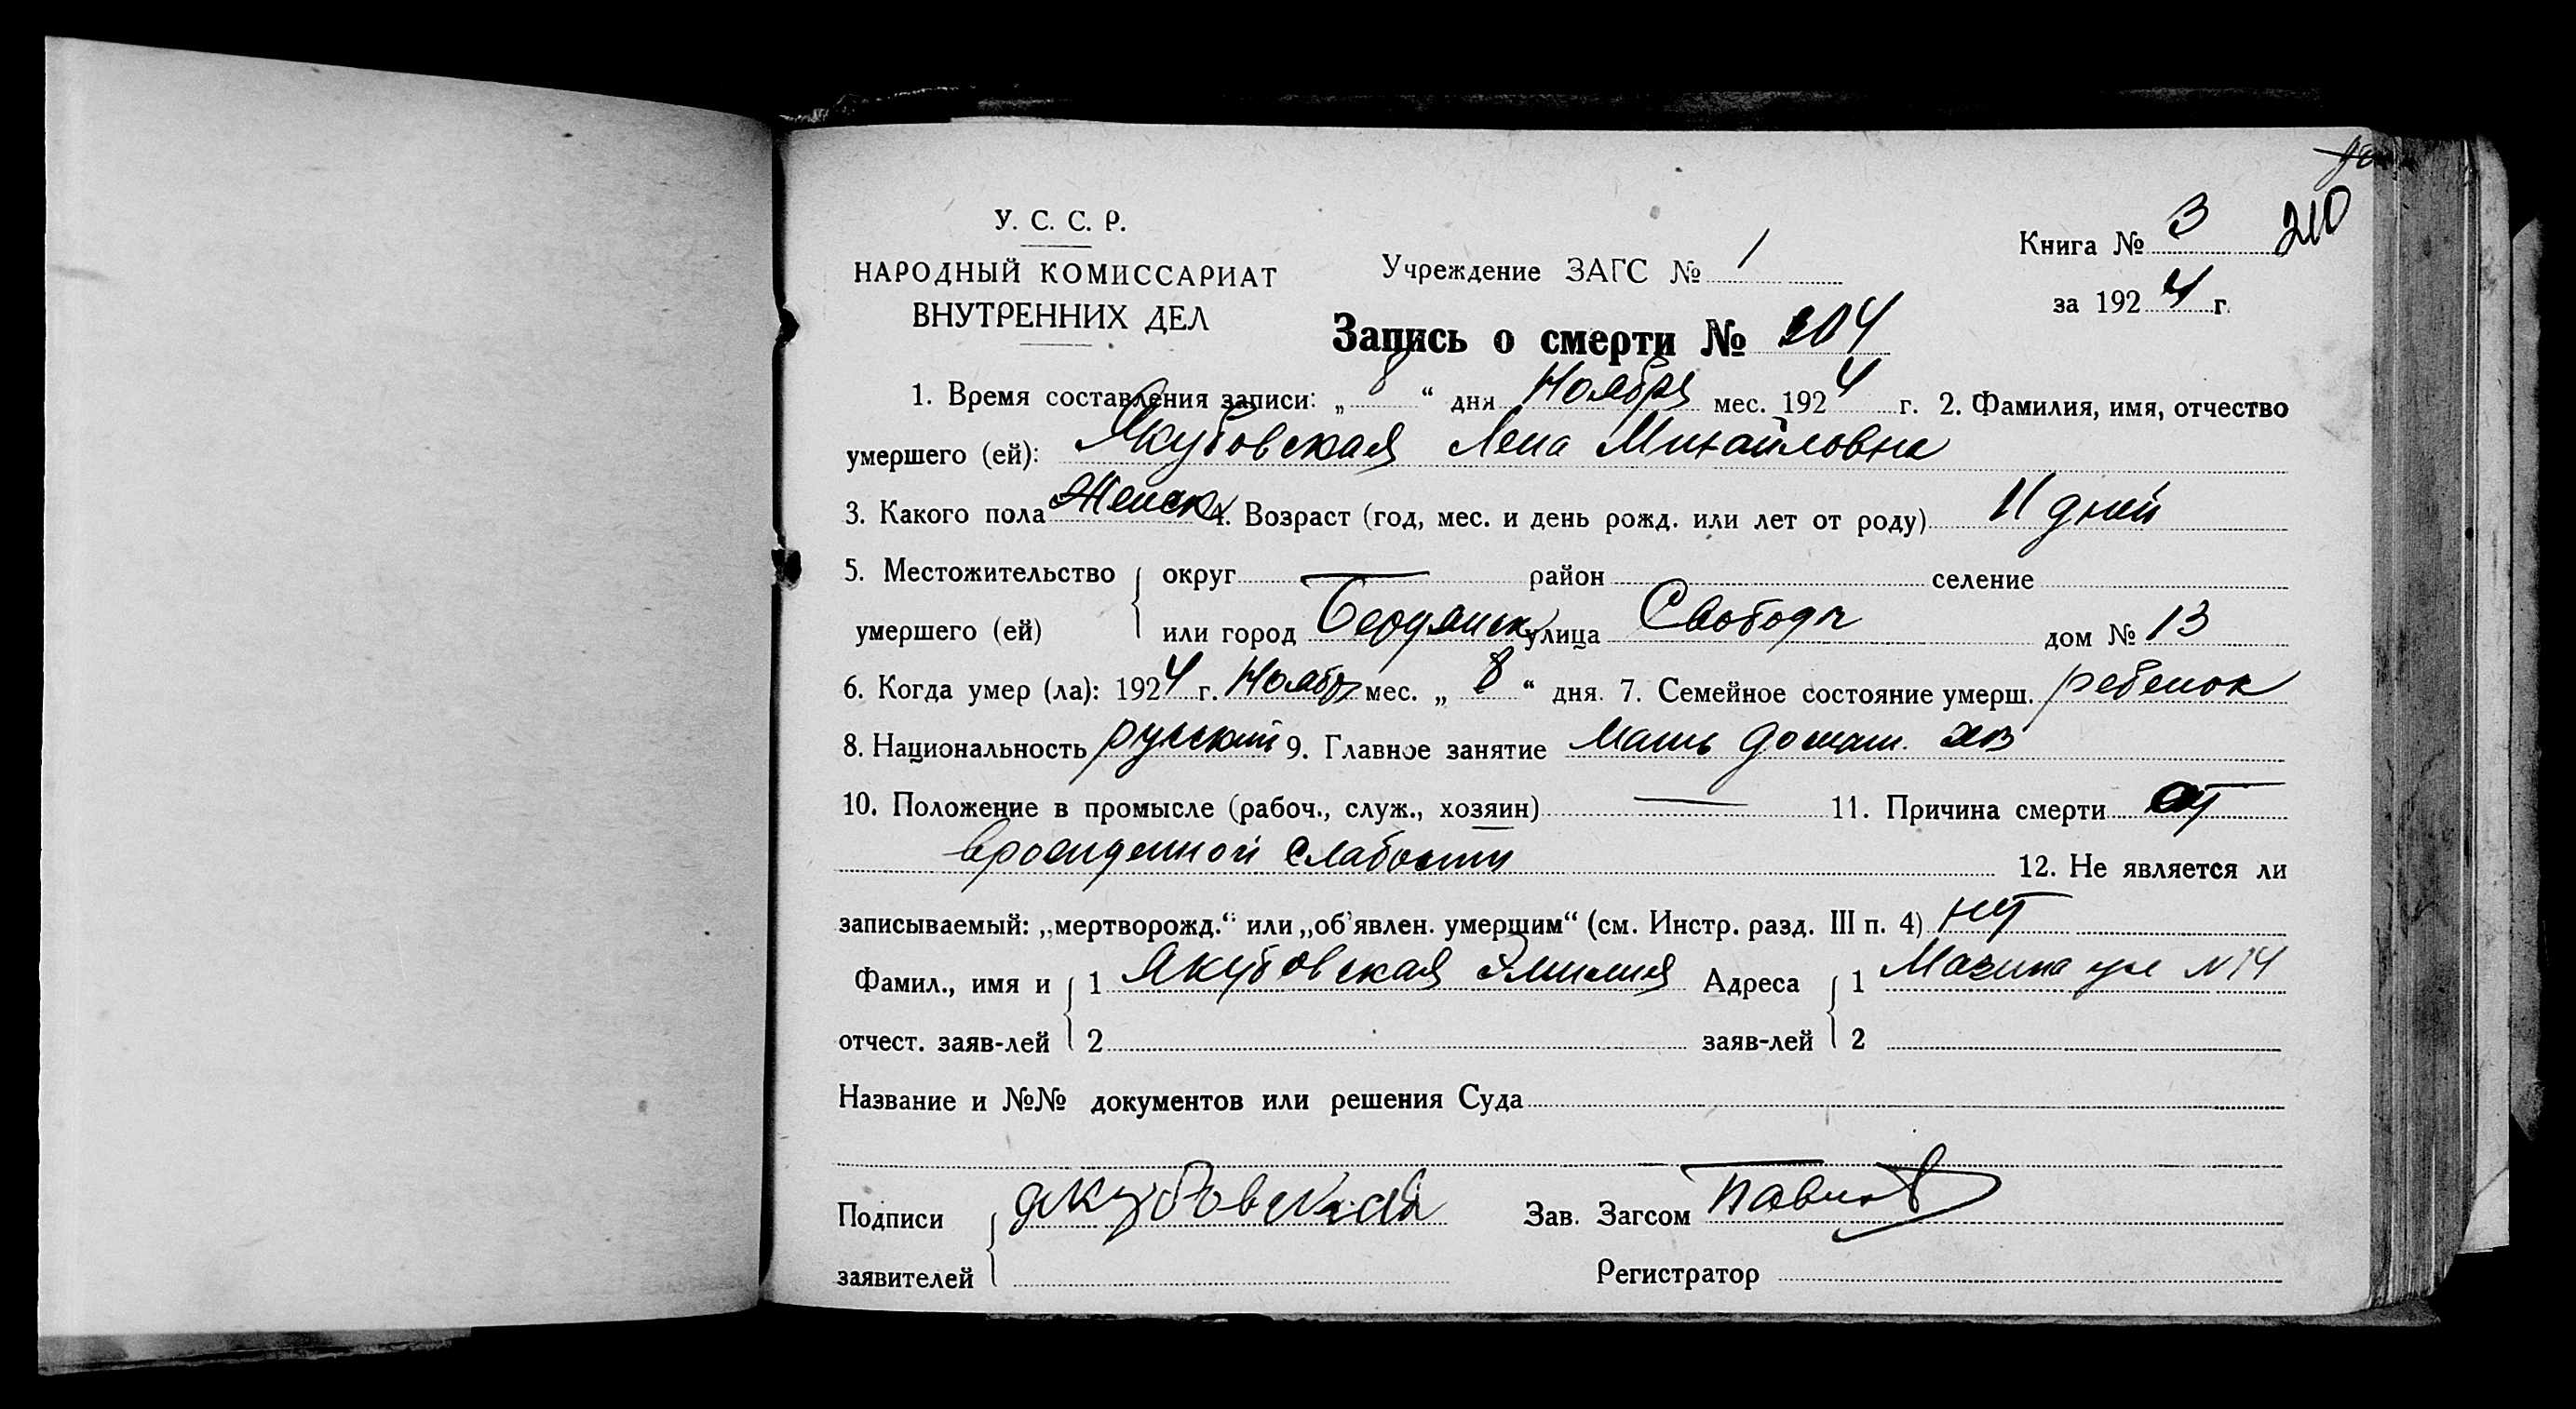 210
У. С. С. Р.
НАРОДНЫЙ КОМИССАРИАТ
ВНУТРЕННИХ ДЕЛ
Учреждение ЗАГС № 1
Книга № 3
за 1924 г.
Запись о смерти № 204
1. Время составления записи: „ 8 “ дня Ноября мес. 1924 г. 2. Фамилия, имя, отчество
умершего (ей): Якубовская Лена Михайловна
3. Какого пола Женск 4. Возраст (год, мес. и день рожд. или лет от роду) 11 дней
5. Местожительство округ район селение
умершего (ей) или город Бердянск улица Свободы дом № 13
6. Когда умер (ла): 1924 г. Ноябр мес. „ 8 “ дня. 7. Семейное состояние умерш. ребенок
8. Национальность русский 9. Главное занятие Мать домаш. хоз
10. Положение в промысле (рабоч., служ., хозяин) — 11. Причина смерти от
врожденной слабости 12. Не является ли
записываемый: „мертворожд.“ или „об’явлен. умершим“ (см. Инстр. разд. III п. 4) нет
Фамил., имя и 1 Якубовская Эмилия Адреса 1 Мазина ул N 14
отчест. заяв-лей 2 заяв-лей 2
Название и №№ документов или решения Суда
Подписи Якубовская Зав. Загсом Павлов
заявителей Регистратор